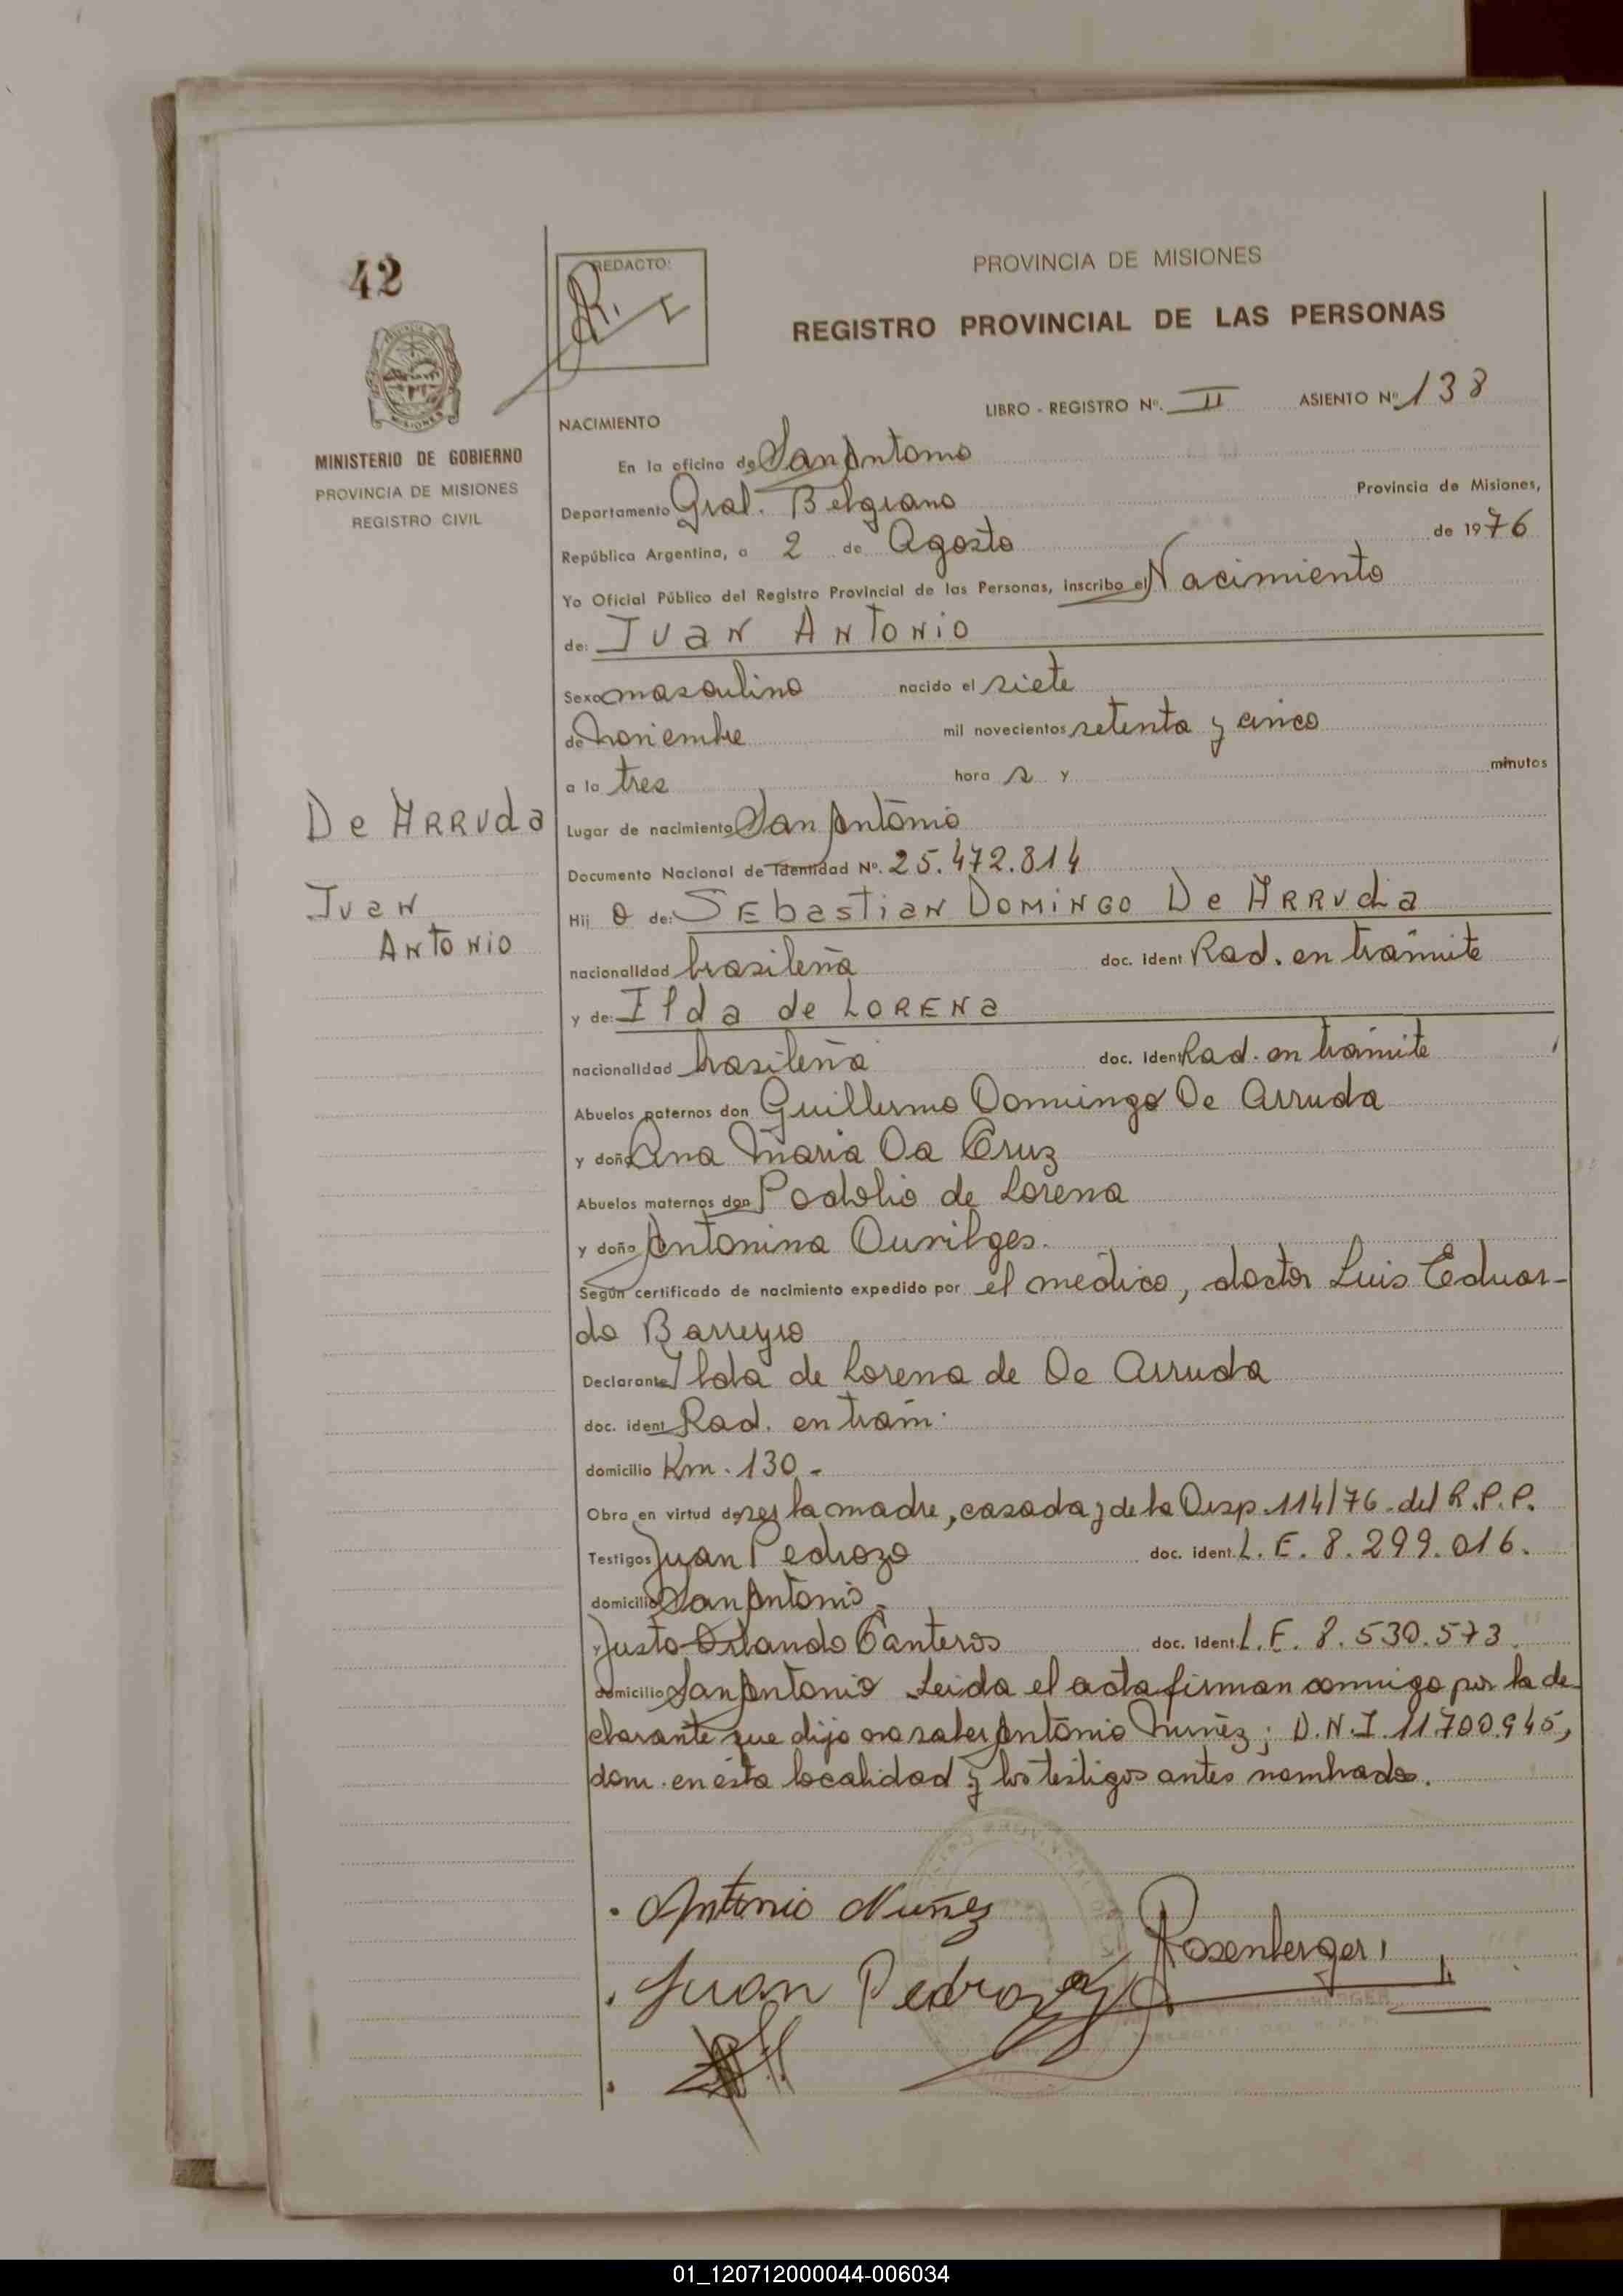 42
REDACTO:
PROVINCIA DE MISIONES
REGISTRO PROVINCIAL DE LAS PERSONAS
LIBRO - REGISTRO Nº. II ASIENTO Nº 138
MINISTERIO DE GOBIERNO
PROVINCIA DE MISIONES
REGISTRO CIVIL
NACIMIENTO
En la oficina de San Antonio
Departamento Gral. Belgrano Provincia de Misiones,
República Argentina, a 2 de Agosto de 1976
Yo Oficial Público del Registro Provincial de las Personas, inscribo el Nacimiento
de: Juan Antonio
Sexo masculino nacido el siete
de noviembre mil novecientos setenta y cinco
a la tres hora s y minutos
De Arruda
Juan
Antonio
Lugar de nacimiento San Antonio
Documento Nacional de Identidad Nº. 25.472.814
Hij o de: Sebastian Domingo De Arruda
nacionalidad brasileña doc. ident Rad. en trámite
y de: Ilda de Lorena
nacionalidad brasileña doc. ident Rad. en trámite
Abuelos paternos don Guillermo Domingo De Arruda
y doña Ana Maria Da Cruz
Abuelos maternos don Podolio de Lorena
y doña Antonina
Según certificado de nacimiento expedido por el médico, doctor Luis Eduar-
do Barreyro
Declarante Ilda de Lorena de De Arruda
doc. ident Rad. en trám.
domicilio Km. 130.-
Obra en virtud de ser la madre, casada y de la Disp. 114/76 del R.P.P.
Testigos Juan Pedrozo doc. ident. L.E. 8.299.016.
domicilio San Antonio
y Justo Orlando Canteros doc. ident. L.E. 8.530.573.
domicilio San Antonio Leida el acta firman conmigo por la de-
clarante que dijo no saber Antonio Nuñez; D.N.I. 11.700.945,
dom. en ésta localidad y los testigos antes nombrados.
Antonio Nuñez
Rosenberger
Juan Pedrozo
01_120712000044-006034